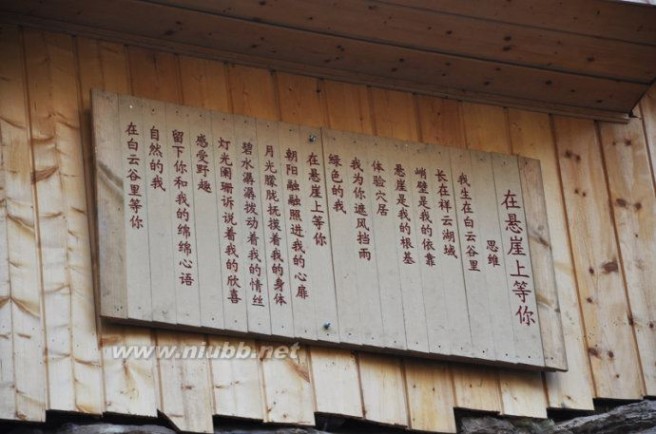 在悬崖上等你
思维
我生在白云谷里
长在祥云湖域
峭壁是我的依靠
悬崖是我的根基
体验穴居
我为你遮风挡雨
绿色的我
在悬崖上等你
朝阳融融照进我的心扉
月光朦胧抚摸着我的身体
碧水潺潺拨动着我的情丝
灯光阑珊诉说着我的欣喜
感受野趣
留下你和我的绵绵心语
自然的我
在白云谷里等你
www.niubb.net